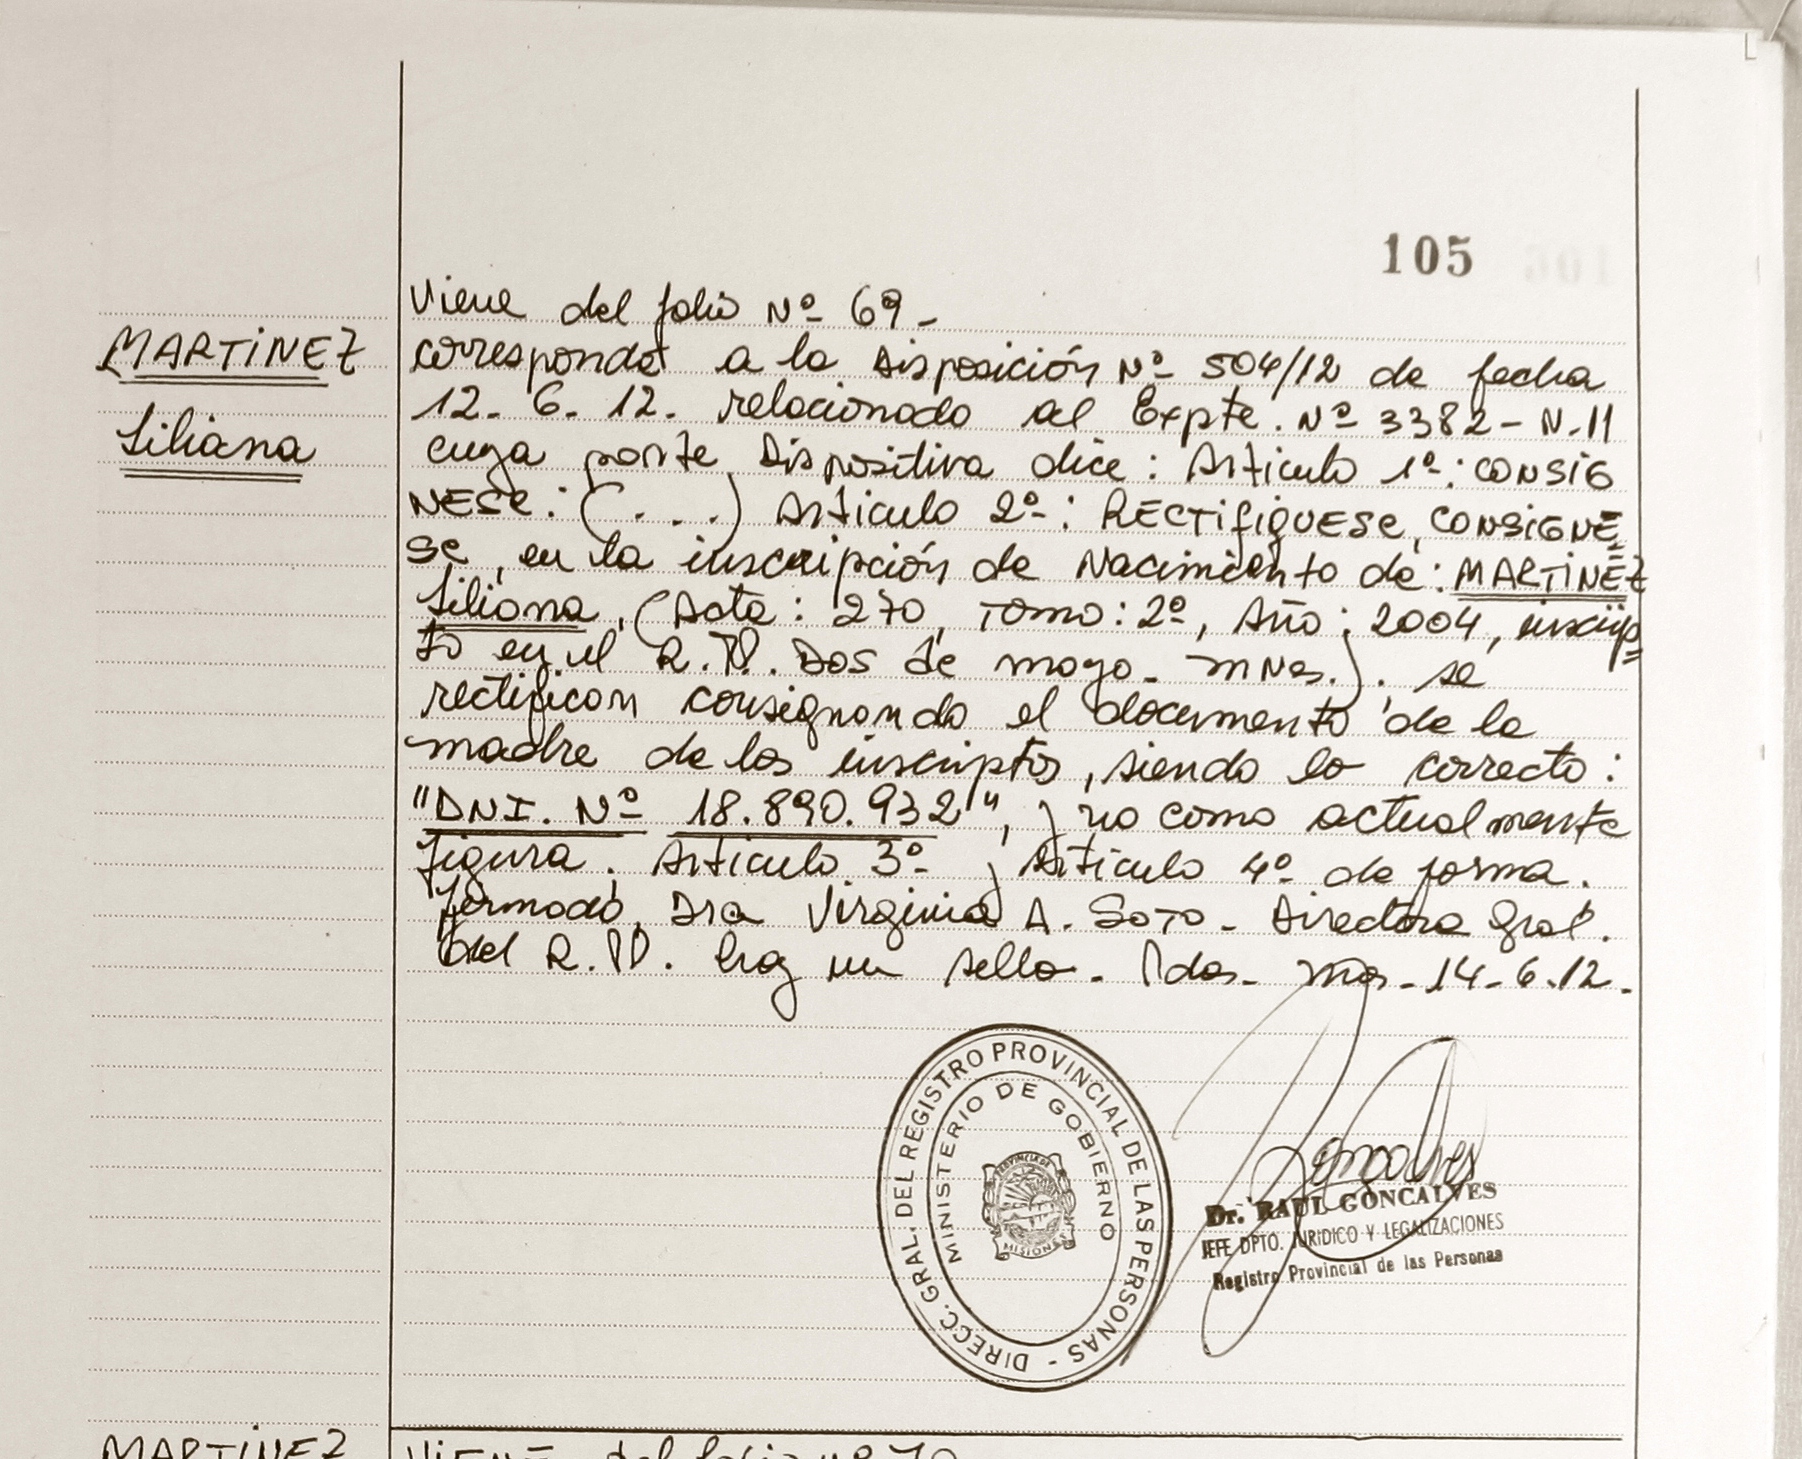 105
Viene del folio Nº 69-
MARTINEZ
Liliana
corresponde a la Disposición Nº 504/12 de fecha
12-6-12. relacionado al Expte. Nº 3382-N-11
cuya parte Dispositiva dice: Articulo 1º: CONSIG
NESE: (...) Articulo 2º: RECTIFIQUESE, CONSIGNE
SE, en la inscripción de Nacimiento de: MARTINEZ
Liliana, (Acta: 270, Tomo: 2º, Año: 2004, inscrip
to en el R.P. Dos de mayo- mnes.). se
rectifican consignando el documento de la
madre de los inscriptos, siendo lo correcto:
"DNI. Nº 18.890.932", y no como actualmente
figura. Articulo 3º y Articulo 4º de forma.
firmado, Dra Virginia A. SOTO- Directora Gral.
del R.P. hay un sello. Pdas- mns-14-6-12.
DIRECC. GRAL. DEL REGISTRO PROVINCIAL DE LAS PERSONAS -
MINISTERIO DE GOBIERNO
PROVINCIA DE
MISIONES
Goncalves
Dr. RAUL GONCALVES
JEFE DPTO. JURIDICO Y LEGALIZACIONES
Registro Provincial de las Personas
MARTINEZ
VIENE del folio nº 70